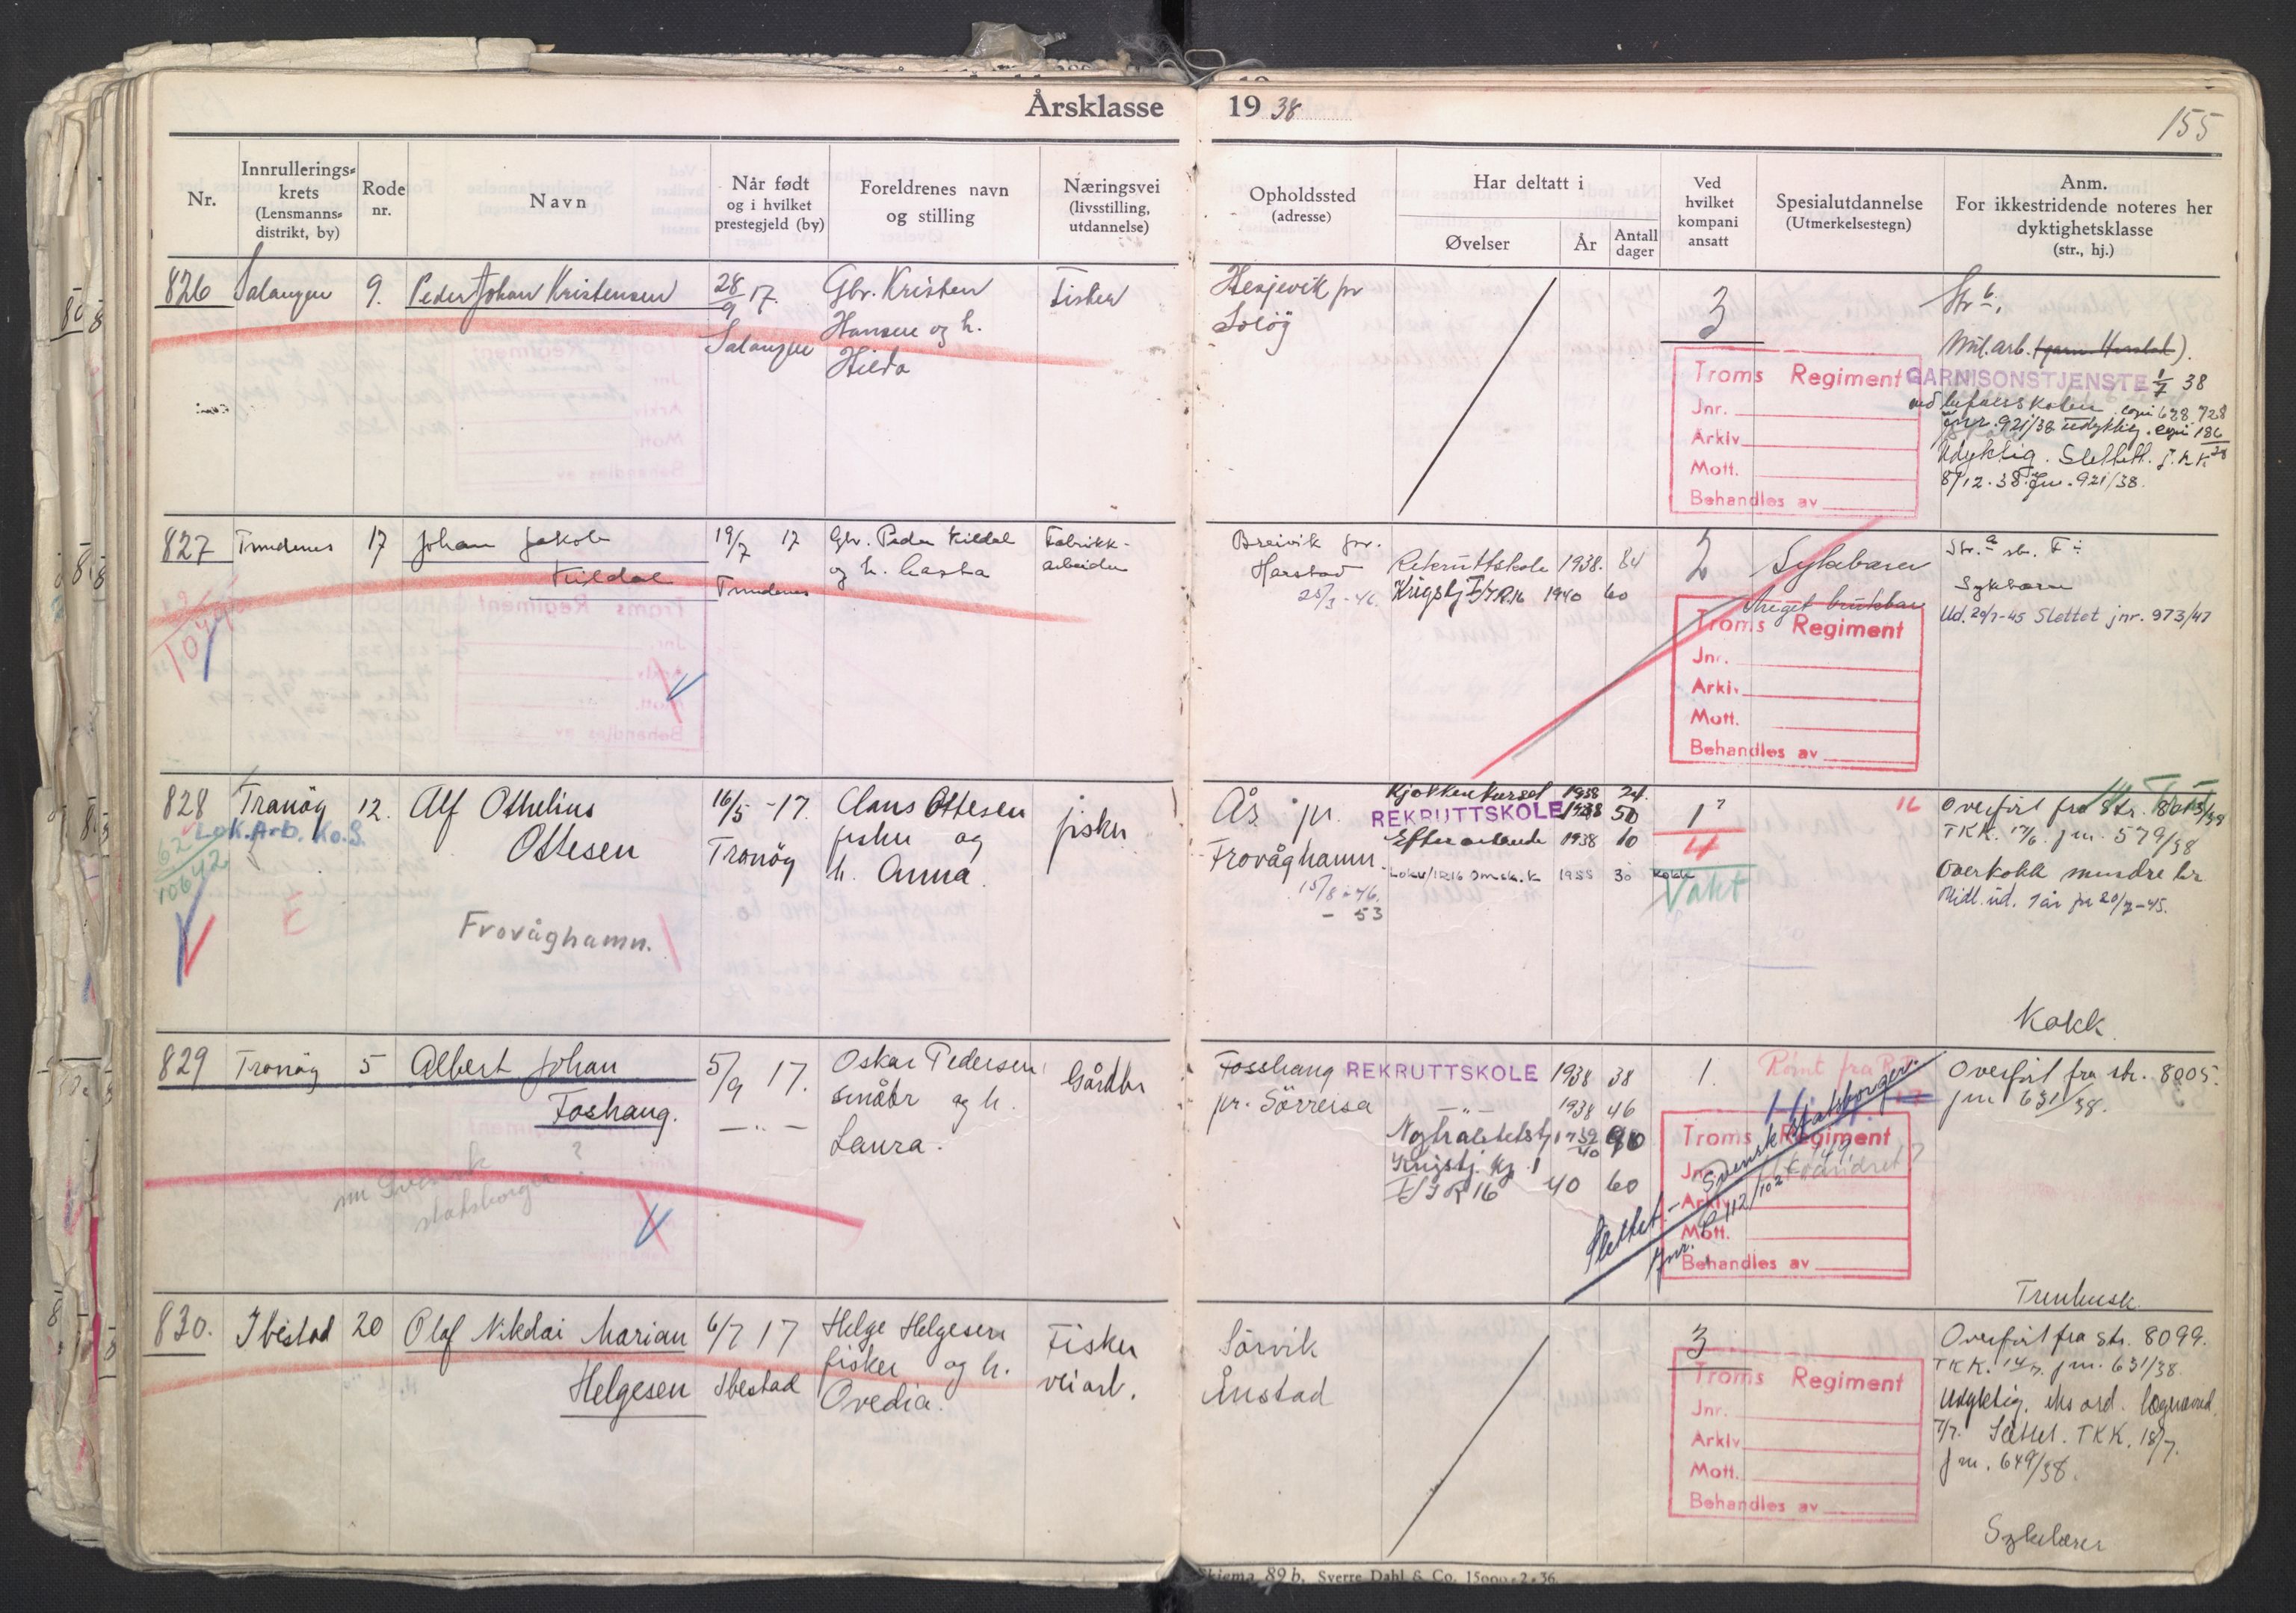 Årsklasse 1938
155
Nr.
Innrullerings-
krets
(Lensmanns-
distrikt, by)
Rode
nr.
Navn
Når født
og i hvilket
prestegjeld (by)
Foreldrenes navn
og stilling
Næringsvei
(livsstilling,
utdannelse)
Opholdssted
(adresse)
Har deltatt i
Øvelser
År
Antall
dager
Ved
hvilket
kompani
ansatt
Spesialutdannelse
(Utmerkelsestegn)
Anm.
For ikkestridende noteres her
dyktighetsklasse
(str., hj.)
826 Salangen 9. Peder Johan Kristensen
28/9 17.
Salangen
Gbr. Kristen
Hansen og h.
Hilda
Fisker
3
Mil. arb.
Troms Regiment
Jnr.
Arkiv
Mott.
Behandles av
GARNISONSTJENSTE 1/7 38
ved befalsskolen
Jnr. 921/38 udyktig.
Udyktig. Slettet.
8/12.38. Jnr. 921/38.
827 Trondenes 17 Johan Jakob
Kildal
19/7 17
Trondenes
Gbr. Peder Kildal
og h. Hasta
Fabrikk-
arbeider
Breivik pr.
Harstad
25/3-46.
Rekruttskole 1938. 84
Krigstj I/IR.16 1940 60
2
Sykebærer
Meget brukbar
Troms Regiment
Jnr.
Arkiv.
Mott.
Behandles av
Sykebærer
Ud. 20/7-45 Slettet jnr. 973/47
828 Tranöy 12. Alf Othelius
Ottesen
Lok. Arb. Ko. S.
10642
Frovåghamn.
16/5-17.
Tranöy
Claus Ottesen
fisker og
h. Anna.
fisker
Ås pr.
Frovåghamn.
15/8-46.
- 53
Kjøkkenkurset 1938 24.
REKRUTTSKOLE 1938 50
1938 10
30
1
4
Kokk
Vakt
16
Overført fra str. 8013/39
TKK. 17/6. jnr. 579/38
Overkokk mindre br
Midl. ud. 1 år fr 20/7-45.
Kokk.
829 Tranöy 5 Albert Johan
Foshaug.
nu Svensk
statsborger ?
5/9 17.
— " —
Oskar Pedersen
småbr og h.
Laura.
Gårdbr
Fosshaug
pr. Sörreisa
REKRUTTSKOLE 1938 38
— " — 1938 46
Nøytralitetstj 1939/40 90
Krigstj. Kp. 1
I/IR 16 40 60
1.
Rømt fra
Slettet - Svensk statsborger.
Jnr.
Troms Regiment
Jnr.
Arkiv
Mott.
Behandles av
Overført fra str. 8005.
jnr 631/38.
Trenkusk.
830. Ibestad 20 Olaf Nikolai Marian
Helgesen
6/7 17
Ibestad
Helge Helgesen
fisker og h.
Ovedia.
Fisker
veiarb.
Sörvik
Ånstad
3
Troms Regiment
Jnr.
Arkiv
Mott.
Behandles av
Overført fra str. 8099.
TKK. 14/7. jnr. 631/38.
Udyktig, eks ord. legenævnd.
7/7. Slettet. TKK. 18/7.
jnr. 649/38.
Sykebærer
Skjema 89 b. Sverre Dahl & Co. 15000-2-36.